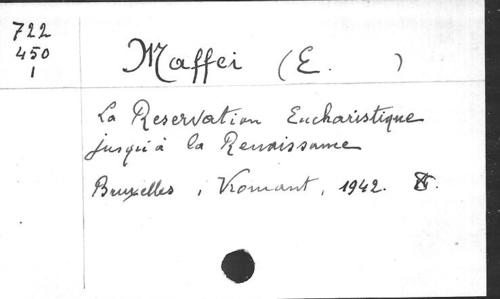 722
450
1
Maffei (E. )
La Reservation Eucharistique
jusqu'à la Renaissance
Bruxelles, Vromant, 1942.